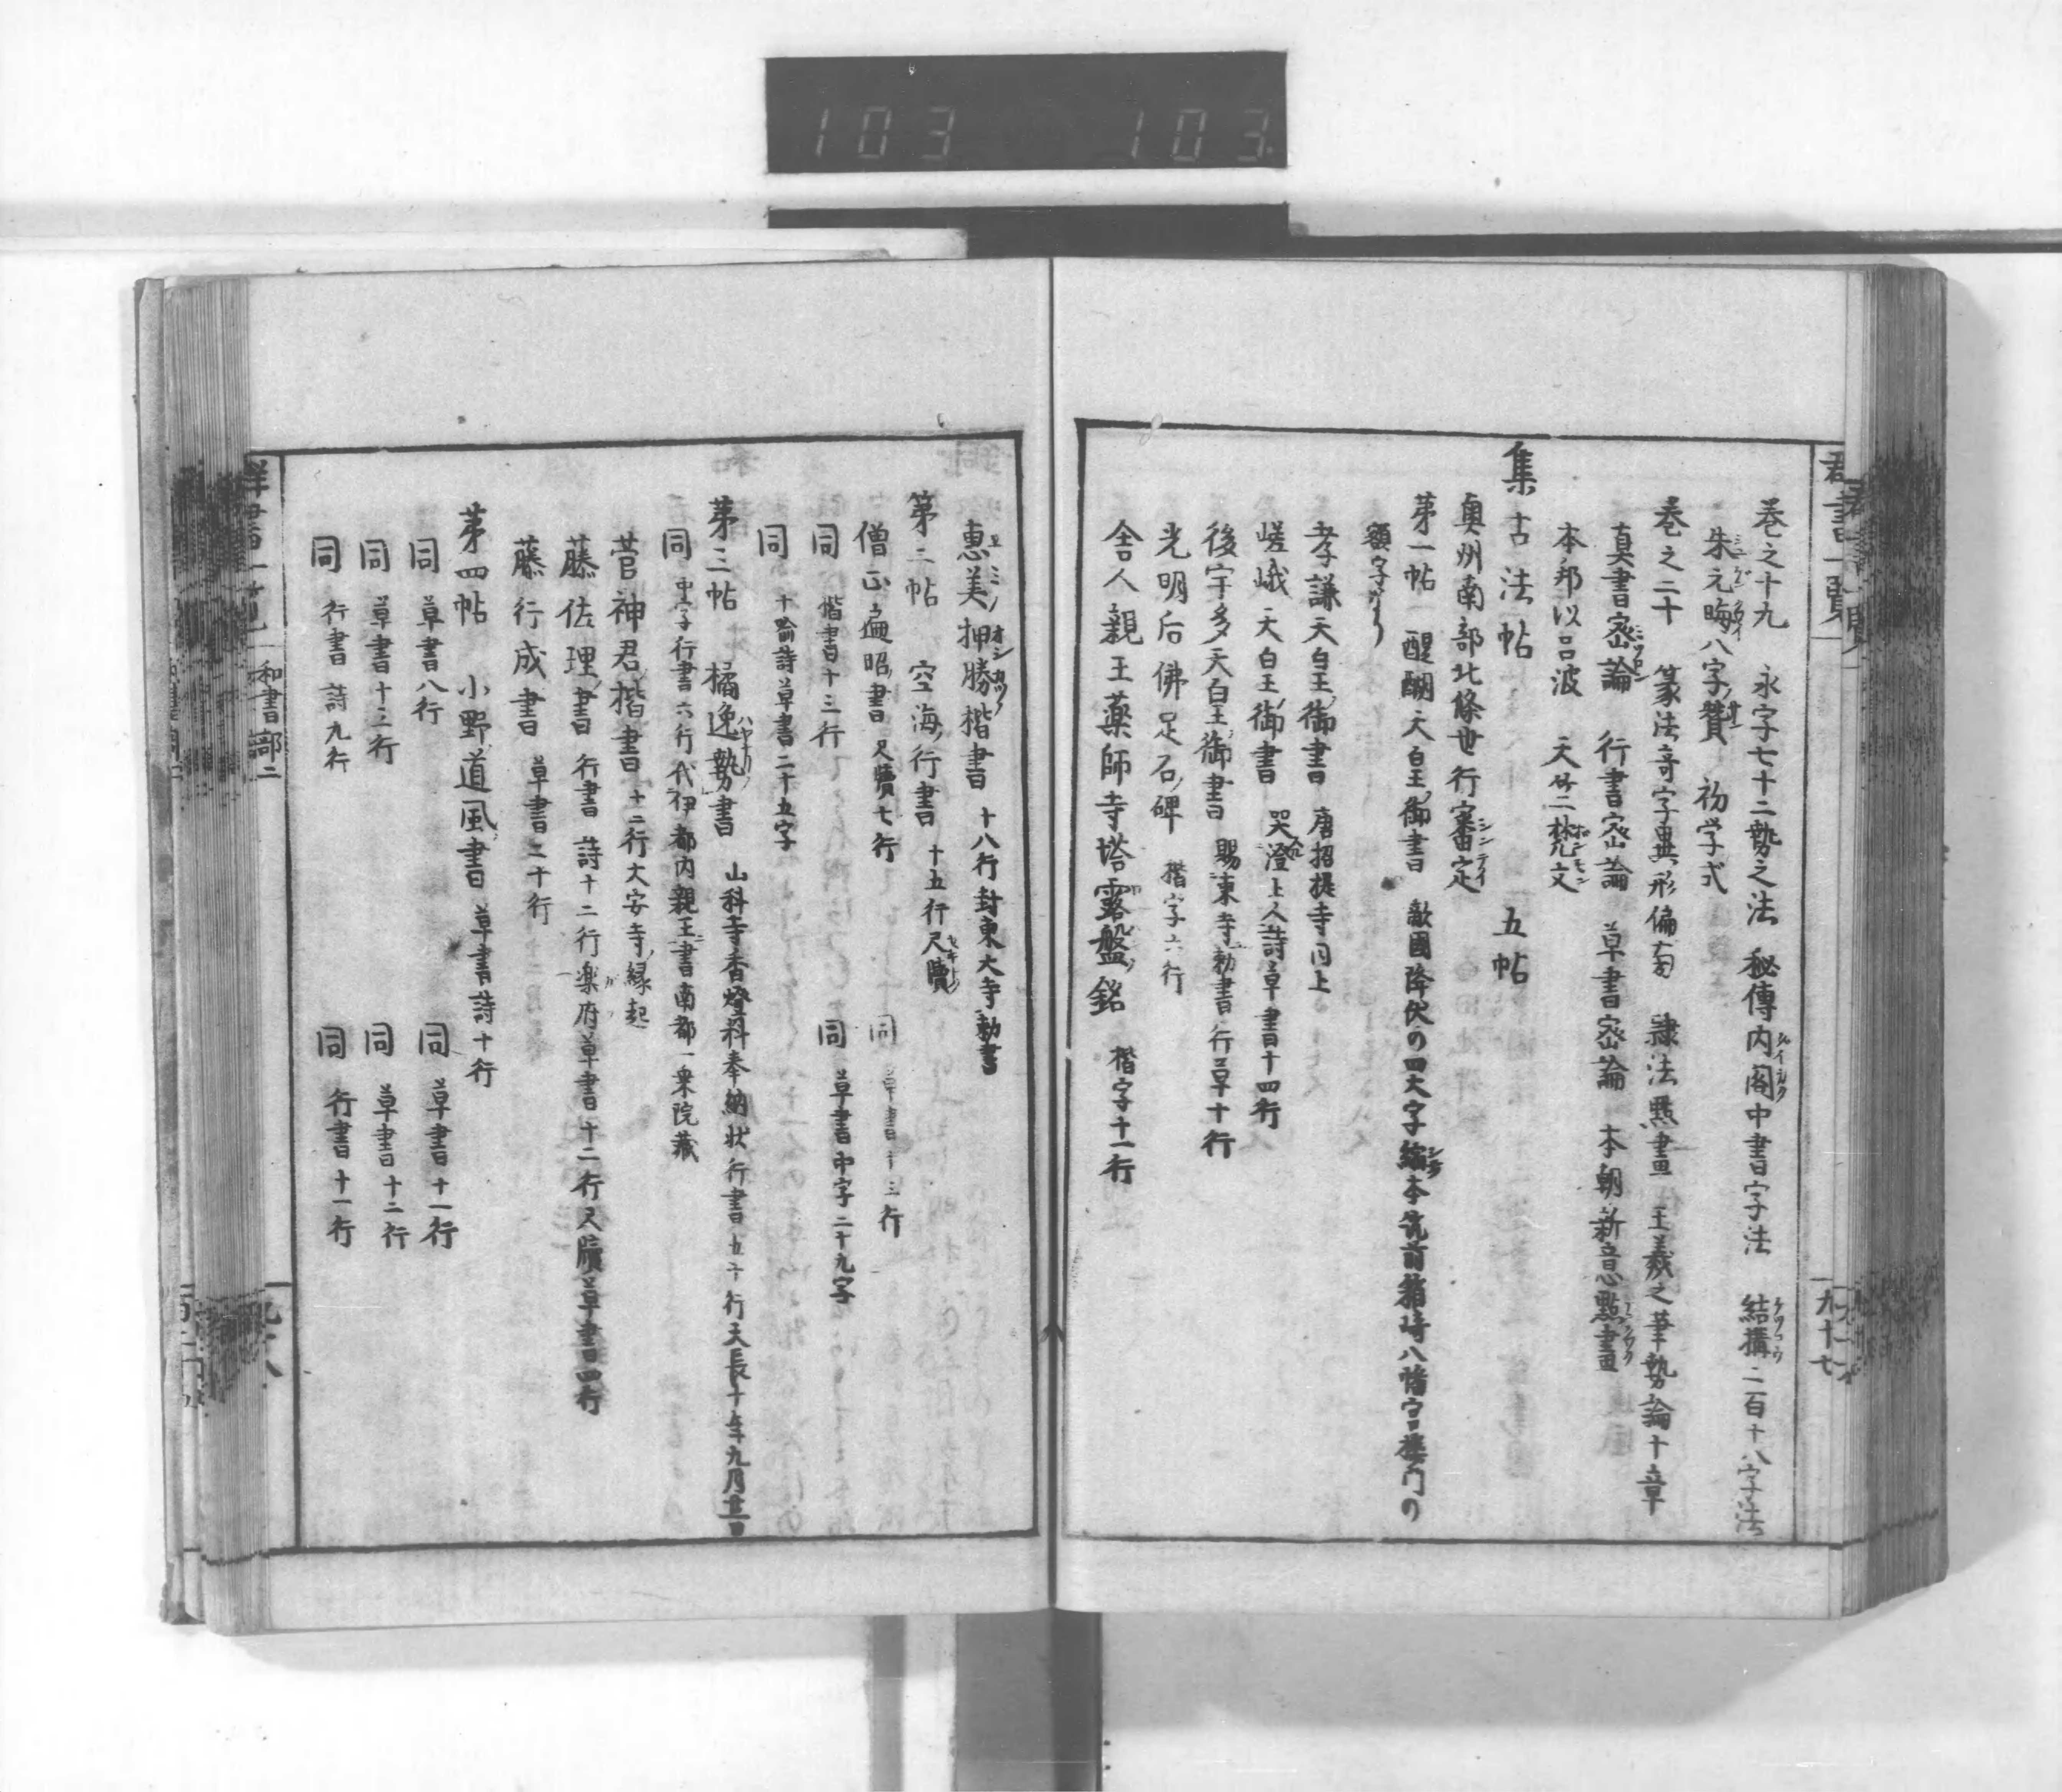 103 103
群書一覧
九十七
巻之十九 永字七十二勢之法 秘傳内閣中書字法 結搆二百十八字法
朱元晦八字賛 初学式
巻之二十 篆法竒字異形偏旁 隷法㸃畫 王羲之筆勢論十章
真書宻論 行書宻論 草書宻論 本朝新意㸃畫
本邦以呂波 天竺梵文
集古法帖 五帖
奥州南部北條世行審定
第一帖 醍醐天皇御書 敵國降伏の四大字縮本筑前箱崎八幡宮樓門の
額字なり
孝謙天皇御書 唐招提寺門上
嵯峨天皇御書 哭澄上人詩草書十四行
後宇多天皇御書 賜東寺勅書行草十行
光明后佛足石碑 楷字六行
舎人親王薬師寺塔露盤銘 楷字十一行
惠美押勝楷書 十八行封東大寺勅書
第二帖 空海行書 十五行尺牘
僧正遍昭書 尺牘七行 同 草書十三行
同 楷書十三行 同 草書中字二十九字
同 十喻詩草書二十五字
第三帖 橘逸勢書 山科寺香燈料奉納状行書五十行天長十年九月廿一日
同 中字行書六行代伊都内親王書南都一乗院藏
菅神君楷書 十二行大安寺縁起
藤佐理書 行書詩十二行楽府草書十二行尺牘草書四行
藤行成書 草書二十行
第四帖 小野道風書 草書詩十行
同 草書八行 同 草書十一行
同 草書十三行 同 草書十二行
同 行書詩九行 同 行書十一行
群書一覧
和書部二
九十八